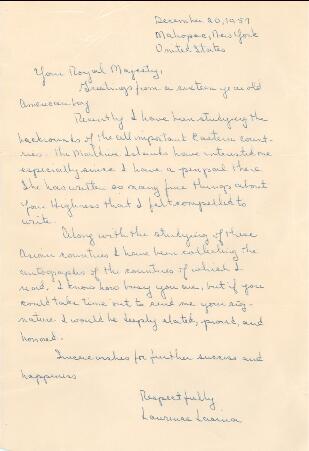 December 20, 1957
Mahopac, New York
United States
Your Royal Majesty,
Greetings from a sixteen year old
American boy.
Recently I have been studying the
backrounds of the all important Eastern count-
ries. The Maldive Islands have interested me
especially since I have a penpal there.
She has written so many fine things about
Your Highness that I felt compelled to
write.
Along with the studying of these
Asian countries I have been collecting the
autographs of the countries of which I
read. I know how busy you are, but if you
could take time out to send me your sig-
nature I would be deeply elated, proud, and
honored.
Sincere wishes for further success and
happiness
Respectfully
Laurence